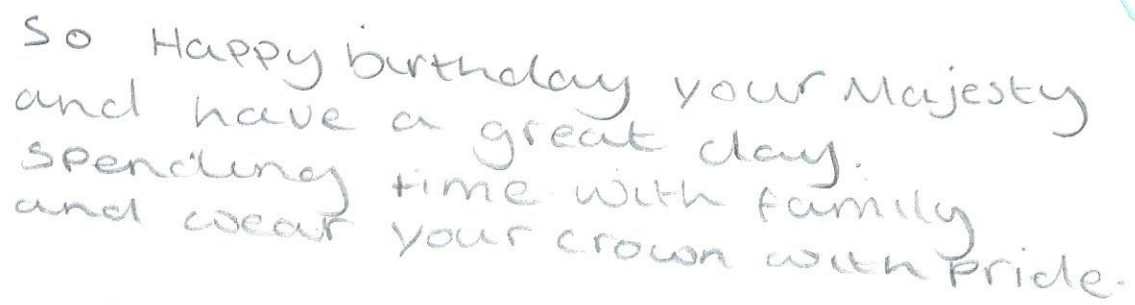 So Happy birthday your Majesty
and have a great day.
spending time with family
and wear your crown with pride.